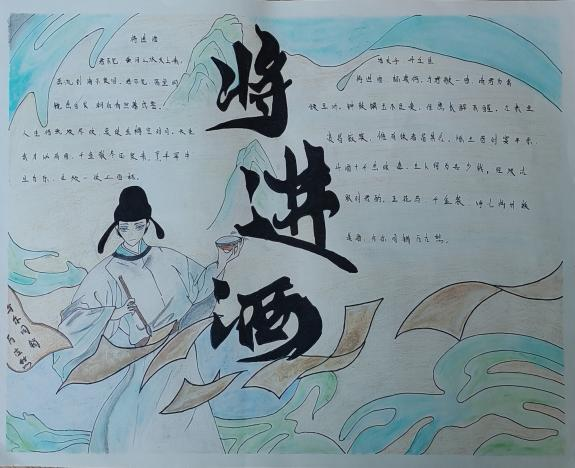 将进酒
将进酒
君不见 黄河之水天上来,
奔流到海不复回。君不见 高堂明
镜悲白发 朝如青丝暮成雪。
人生得意须尽欢 莫使金樽空对月。天生
我才必有用。千金散尽还复来。烹羊宰牛
且为乐。会须一饮三百杯。
岑夫子 丹丘生
将进酒 杯莫停。与君歌一曲 请君为我
倾耳听。钟鼓馔玉不足贵。但愿长醉不醒。古来圣
贤皆寂寞。惟有饮者留其名。陈王昔时宴平乐。
斗酒十千恣欢谑。主人何为言少钱。径须沽
取对君酌。五花马 千金裘 呼儿将出换
美酒。与尔同销万古愁。
与尔同销
万古愁